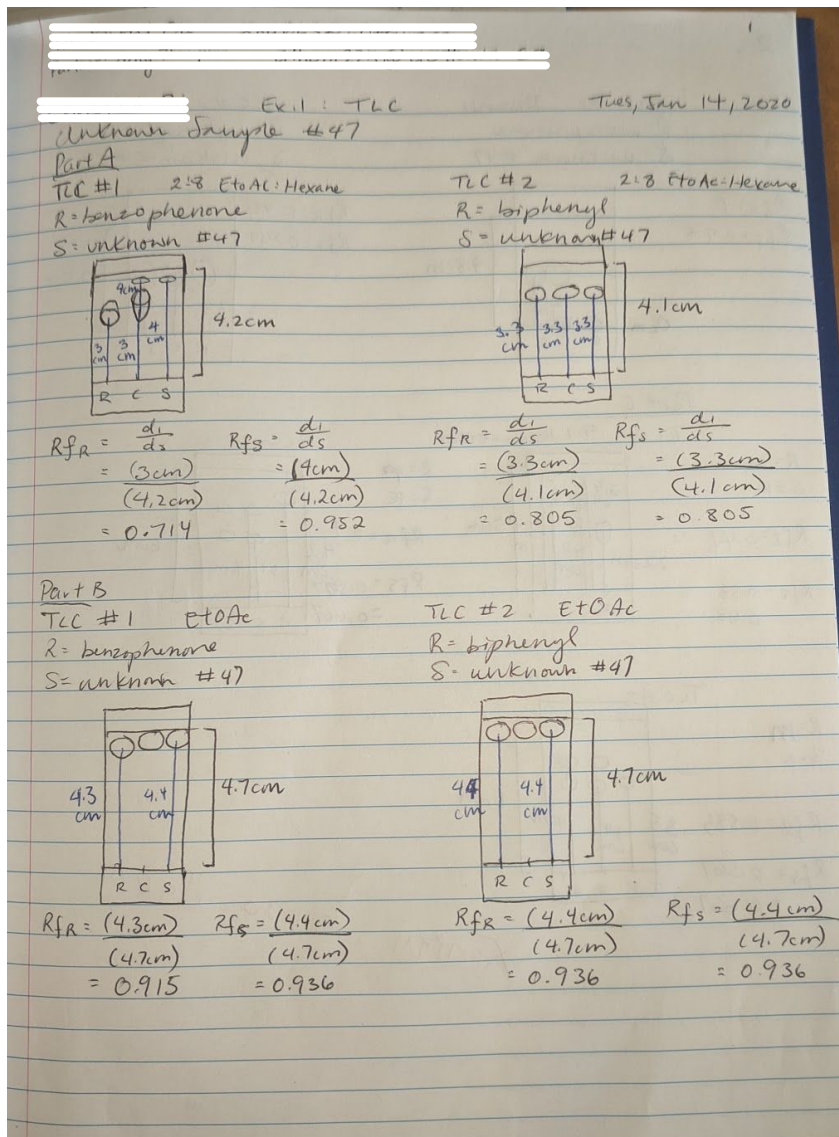 1
Ex.1: TLC Tues, Jan 14, 2020
Unknown Sample #47
Part A
TLC #1 2:8 EtoAc:Hexane
R=benzophenone
S=unknown #47
4cm
3 cm
3 cm
4 cm
4.2cm
R C S
RfR = d1/ds
= (3cm)/(4.2cm)
= 0.714
Rfs = d1/ds
= (4cm)/(4.2cm)
= 0.952
TLC #2 2:8 EtoAc:Hexane
R= biphenyl
S= unknown #47
3.3 cm
3.3 cm
3.3 cm
4.1cm
R C S
RfR = d1/ds
= (3.3cm)/(4.1cm)
= 0.805
Rfs = d1/ds
= (3.3cm)/(4.1cm)
= 0.805
Part B
TLC #1 EtOAc
R= benzophenone
S= unknown #47
4.3 cm
4.4 cm
4.7cm
R C S
RfR = (4.3cm)/(4.7cm)
= 0.915
Rfs = (4.4cm)/(4.7cm)
= 0.936
TLC #2 EtOAc
R= biphenyl
S= unknown #47
4.4 cm
4.4 cm
4.7cm
R C S
RfR = (4.4cm)/(4.7cm)
= 0.936
Rfs = (4.4cm)/(4.7cm)
= 0.936